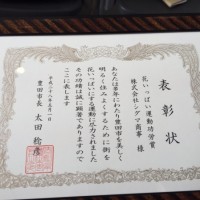 表彰状
花いっぱい運動功労賞
株式会社シグマ商事 様
あなたは多年にわたり豊田市を美しく
明るく住みよくするために街を
花いっぱいにする運動に尽力されました
その功績は誠に顕著でありますので
ここに表します
平成二十八年五月一日
豊田市長 太田稔彦